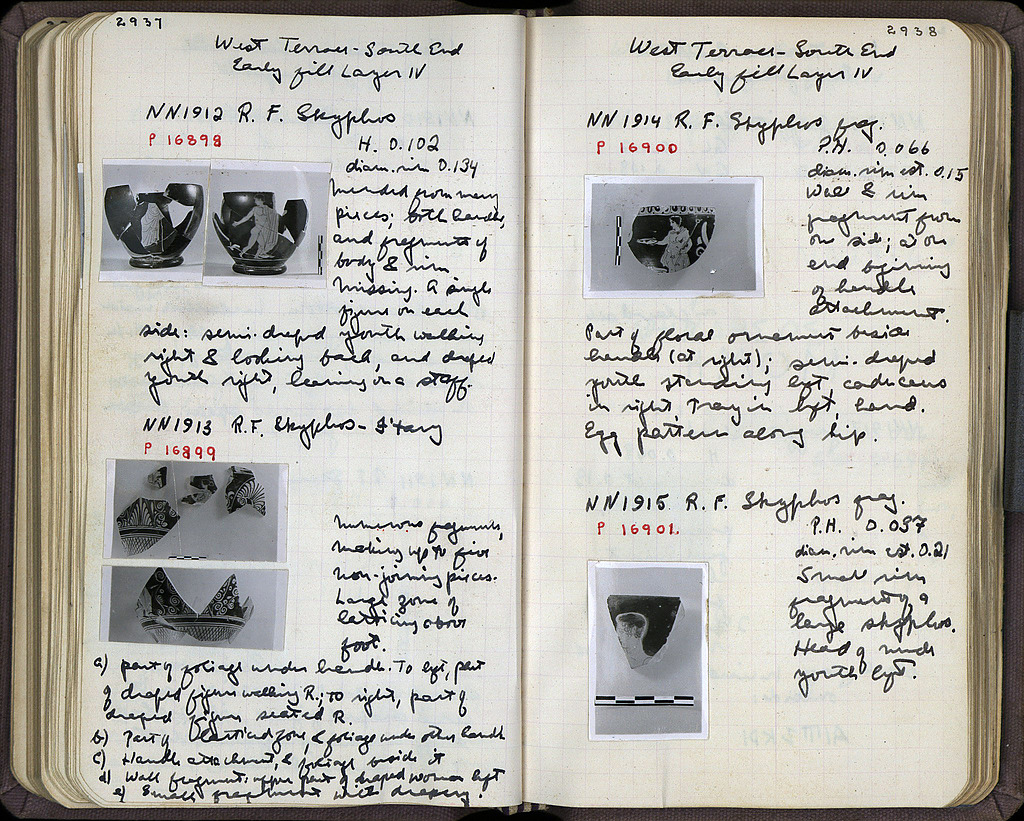 2937
West Terrace - South End
Early fill Layer IV
NN1912 R. F. Skyphos
P 16898
H. 0.102
diam. rim 0.134
Mended from many
pieces; both handles,
and fragments of
body & rim
missing. A single
figure on each
side: semi-draped youth walking
right & looking back, and draped
youth right, leaning on a staff.
NN1913 R.F. Skyphos - frag
P 16899
Numerous fragments,
making up to five
non-joining pieces.
Large zone of
latticing above
foot.
a) part of foliage under handle. To left, part
of draped figure walking R.; to right, part of
draped figure seated R.
b) Part of latticed zone, & foliage under other handle
c) Handle attachment, & foliage beside it
d) Wall fragment: upper part of draped woman left
e) Small fragment with drapery.
2938
West Terrace - South End
Early fill Layer IV
NN1914 R. F. Skyphos frag.
P 16900
P.H. 0.066
diam. rim est. 0.15
Wall & rim
fragment from
one side; at one
end beginning
of handle
attachment.
Part of floral ornament beside
handle (at right); semi-draped
youth standing left, caduceus
in right, tray in left, hand.
Egg pattern along lip.
NN1915 R. F. Skyphos frag.
P 16901
P.H. 0.087
diam. rim est. 0.21
Small rim
fragment of a
large skyphos.
Head of nude
youth left.